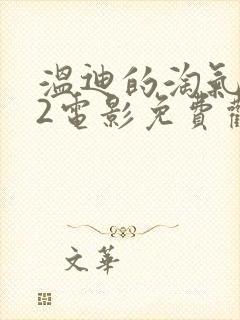 溫迪的淘氣
2電影免費觀
文華